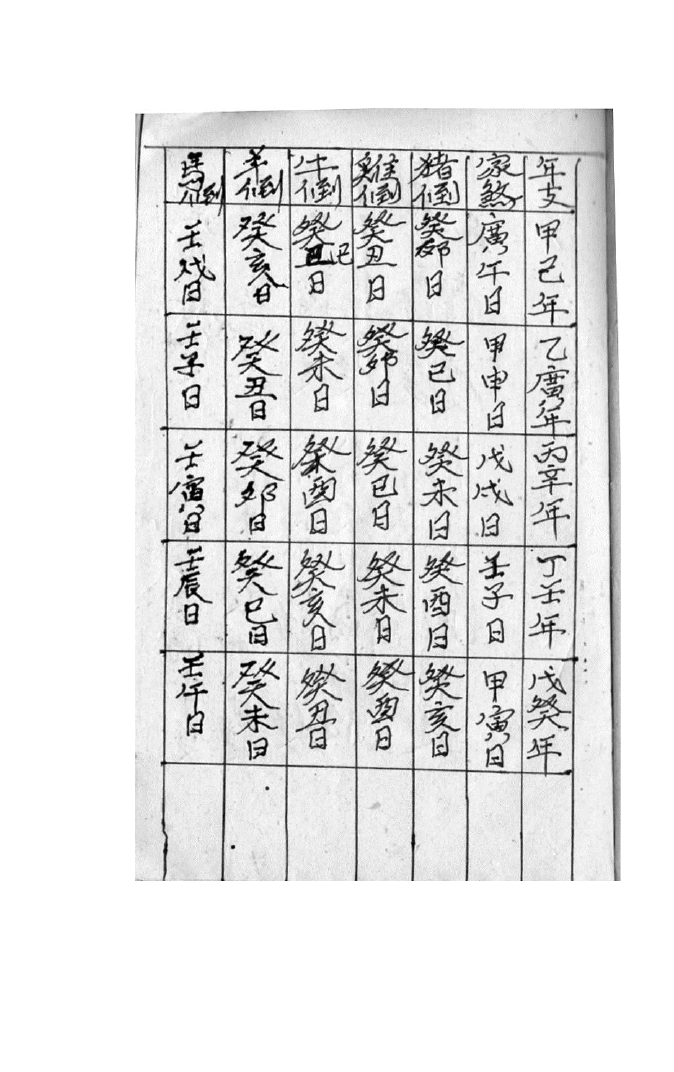 年支 甲己年 乙廣年 丙辛年 丁壬年 戊癸年
家煞 廣午日 甲申日 戊戌日 壬子日 甲寅日
猪倒 癸卯日 癸巳日 癸未日 癸酉日 癸亥日
雞倒 癸丑日 癸卯日 癸巳日 癸未日 癸酉日
牛倒 癸巳日 癸未日 癸酉日 癸亥日 癸丑日
羊倒 癸亥日 癸丑日 癸卯日 癸巳日 癸未日
馬倒 壬戌日 壬子日 壬寅日 壬辰日 壬午日